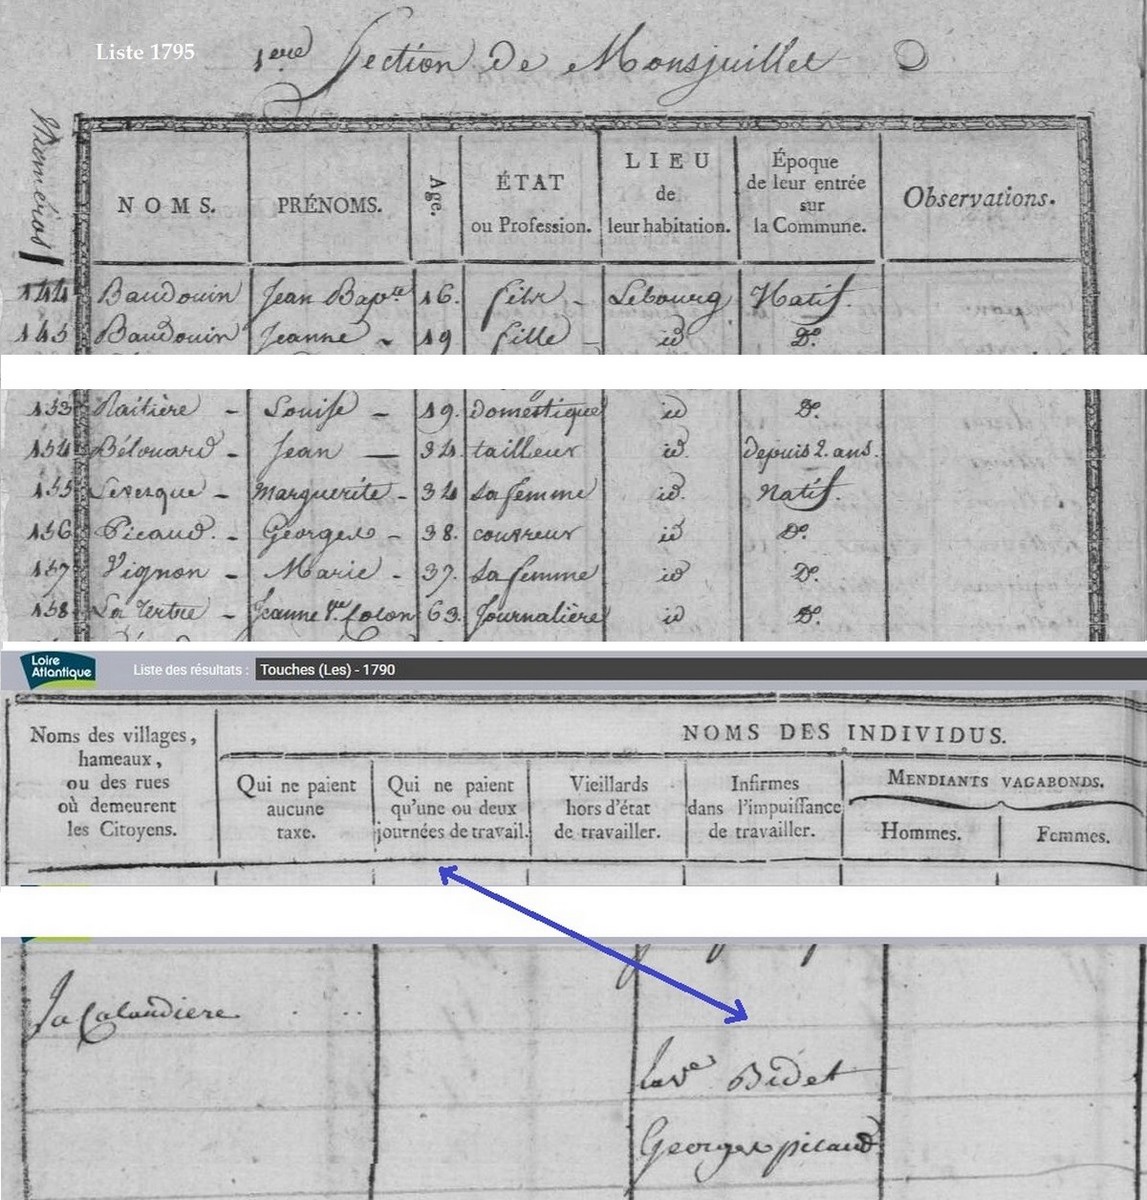 Liste 1795
1ere Section De Monsjuillet
Numéros
NOMS. PRÉNOMS. Age. ÉTAT ou Profession. LIEU de leur habitation. Époque de leur entrée sur la Commune. Observations.
144 Baudouin Jean Bapte 16. filx - Lebourg Natif.
145 Baudouin Jeanne - 19 fille - id Do.
153 Raitière - Louise - 19. domestique id Do.
154 Bélouard - Jean — 34. tailleur id. Depuis 2. ans.
155 Levesque - Marguerite - 34 Sa femme id. Natif.
156 Picaud. - Georges - 38. couvreur id Do.
157 Vignon - Marie - 37. Sa femme id Do.
158 La Tertre - Jeanne Ve. Colon 63. Journalière id Do.
Loire Atlantique
Liste des résultats : Touches (Les) - 1790
Noms des villages, hameaux, ou des rues où demeurent les Citoyens.
NOMS DES INDIVIDUS.
Qui ne paient aucune taxe.
Qui ne paient qu'une ou deux journées de travail.
Vieillards hors d'état de travailler.
Infirmes dans l'impuissance de travailler.
MENDIANTS VAGABONDS.
Hommes. Femmes.
La Calandiere
La ve Bidet
Georges picaud